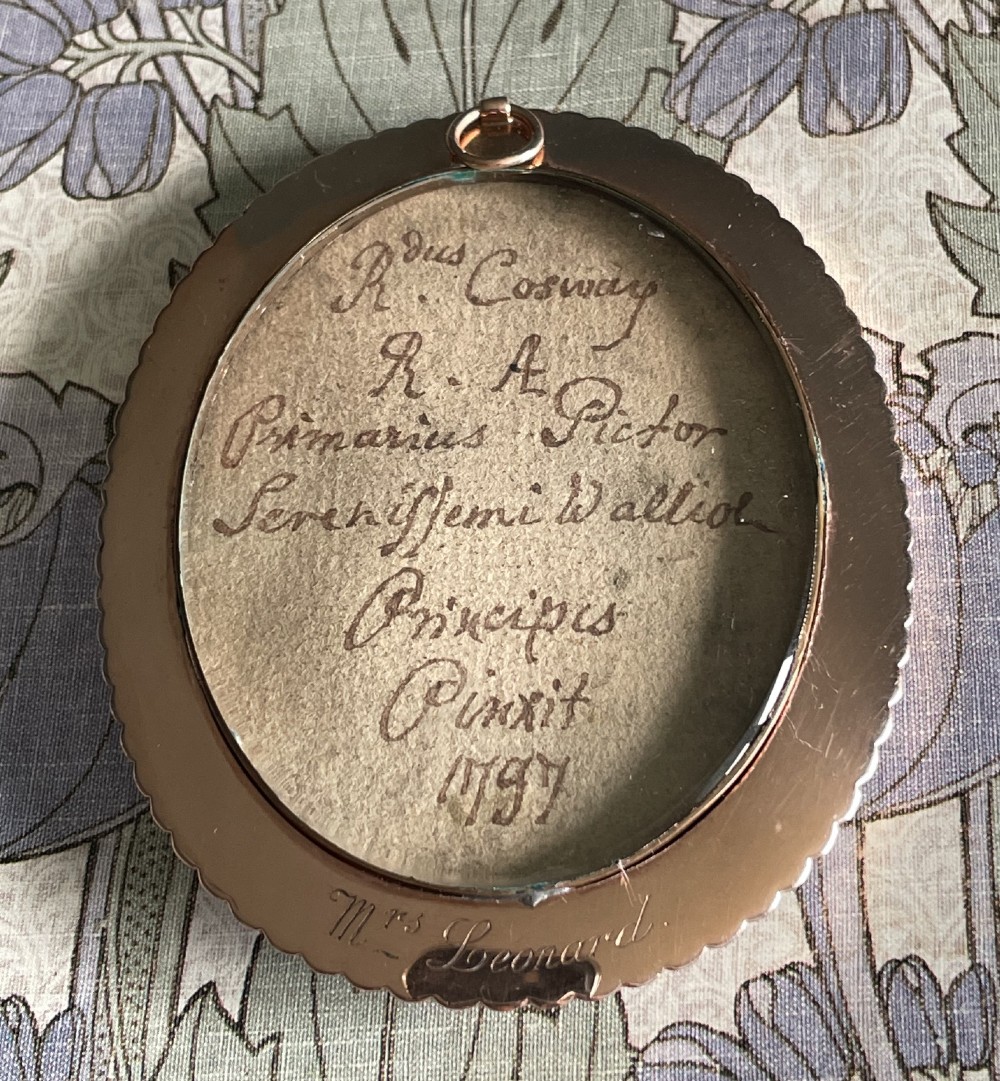 Rdus. Cosway
R. A
Primarius Pictor
Sereniſſemi Walliæ
Principis
Pinxit
1797
Mrs Leonard.